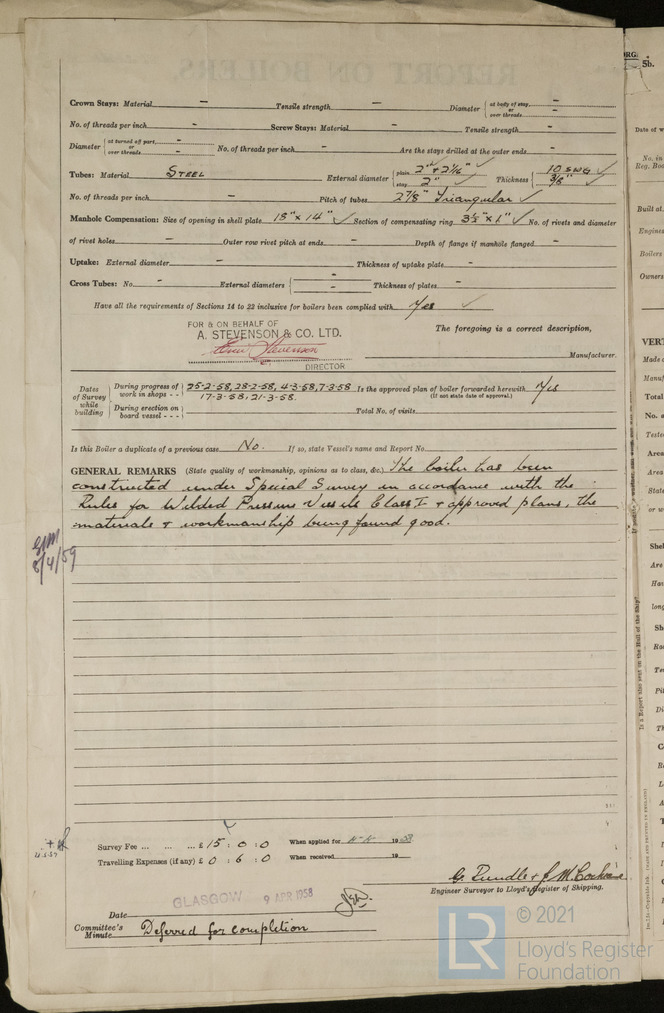 Crown Stays: Material - Tensile strength - Diameter { at body of stay - or over threads -
No. of threads per inch - Screw Stays: Material - Tensile strength -
Diameter { at turned off part, - or over threads - No. of threads per inch - Are the stays drilled at the outer ends -
Tubes: Material STEEL External diameter { plain 2" & 2 1/16" ✓ stay 2" ✓ Thickness { 10 SWG ✓ 3/8" ✓
No. of threads per inch - Pitch of tubes 2 7/8" Triangular ✓
Manhole Compensation: Size of opening in shell plate 18" x 14" ✓ Section of compensating ring 3 1/2" x 1" ✓ No. of rivets and diameter
of rivet holes - Outer row rivet pitch at ends - Depth of flange if manhole flanged -
Uptake: External diameter - Thickness of uptake plate -
Cross Tubes: No. - External diameters { - - Thickness of plates -
Have all the requirements of Sections 14 to 22 inclusive for boilers been complied with Yes ✓
FOR & ON BEHALF OF
A. STEVENSON & CO. LTD.
The foregoing is a correct description,
Stevenson
DIRECTOR
Manufacturer.
Dates of Survey while building
During progress of work in shops - - 25-2-58, 28-2-58, 4-3-58, 7-3-58 Is the approved plan of boiler forwarded herewith Yes
17-3-58, 21-3-58. (If not state date of approval.)
During erection on board vessel - - - Total No. of visits
Is this Boiler a duplicate of a previous case No. If so, state Vessel's name and Report No.
GENERAL REMARKS (State quality of workmanship, opinions as to class, &c.) The boiler has been
constructed under Special Survey in accordance with the
Rules for Welded Pressure Vessels Class I & approved plans, the
materials & workmanship being found good.
8/4/59
Survey Fee ... ... ... £ 15 : 0 : 0 When applied for 19
Travelling Expenses (if any) £ 0 : 6 : 0 When received 19
G. Rundle & J. M. Cochrane
Engineer Surveyor to Lloyd's Register of Shipping.
GLASGOW 9 APR 1958
Date
Committee's Minute Deferred for completion
© 2021
LR Lloyd's Register
Foundation
5b.
Date of
No. in
Reg. Boo
Built at
Engines
Boilers
Owners
VERT
Made
Manuf
Total
No. o
Tested
Area
Area
State
or w
Shel
Are
Hav
long